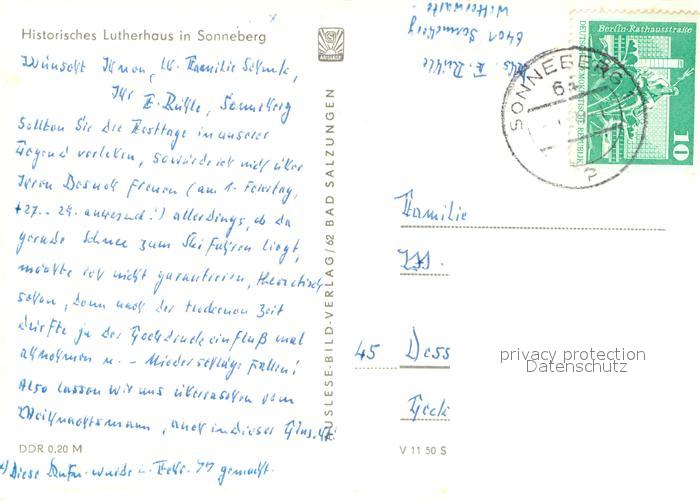 Historisches Lutherhaus in Sonneberg
Wünscht Ihnen, lb. Familie
Ihr E. Rühle, Sonneberg
Sollten Sie die Festtage in unserer
Gegend verleben, so würde ich mich über
Ihren Besuch freuen (am 1. Feiertag,
+27. - 29. anwesend!) allerdings, ob da
gerade Schnee zum Ski Fahren liegt,
möchte ich nicht garantieren, theoretisch
schon, denn nach der trockenen Zeit
dürfte ja der Hochdruckeinfluß mal
abnehmen u. - Niederschläge fallen!
Also lassen wir uns überraschen vom
Weihnachtsmann, auch in dieser Hinsicht
DDR 0,20 M
Diese Aufn. wurde i. Febr. 77 gemacht.
AUSLESE-BILD-VERLAG/62 BAD SALZUNGEN
Abs. E. Rühle
6401 Sonneberg
SONNEBERG 1
Berlin-Rathausstraße
DEUTSCHE DEMOKRATISCHE REPUBLIK
10
Familie
45 Dess
privacy protection
Datenschutz
V 11 50 S